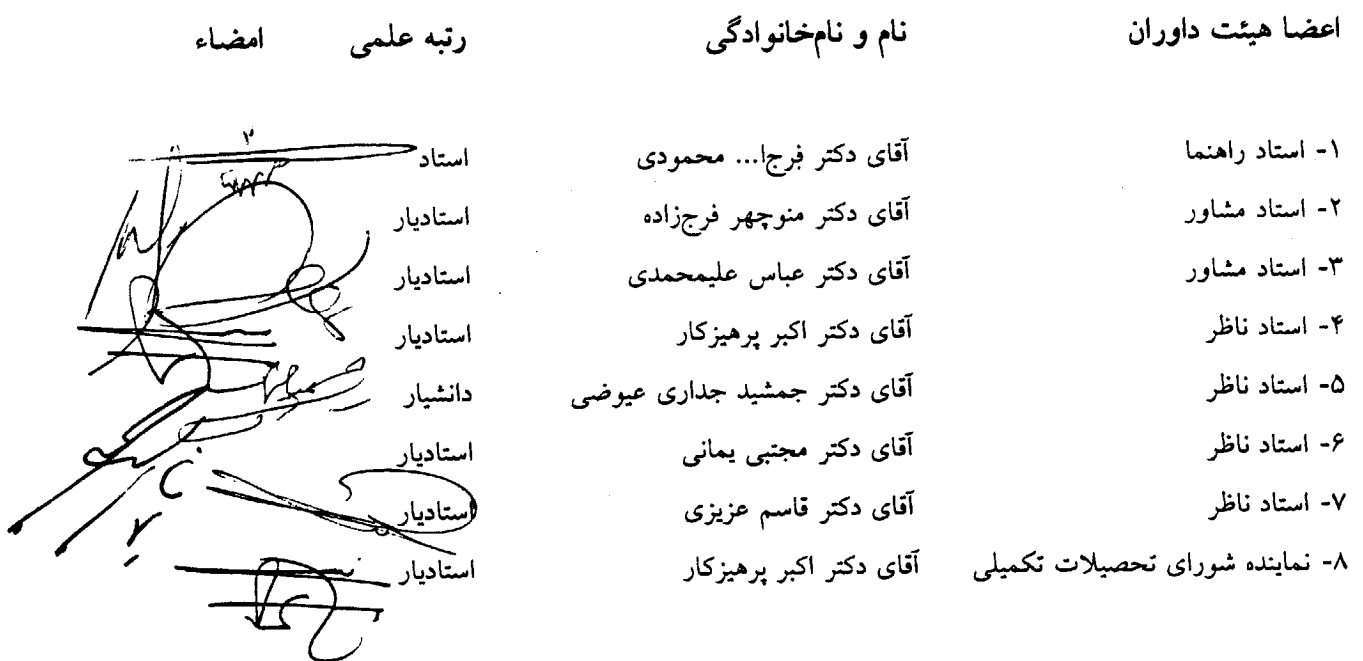 اعضا هیئت داوران نام و نام‌خانوادگی رتبه علمی امضاء
۱- استاد راهنما آقای دکتر فرج‌ا... محمودی استاد
۲- استاد مشاور آقای دکتر منوچهر فرج‌زاده استادیار
۳- استاد مشاور آقای دکتر عباس علیمحمدی استادیار
۴- استاد ناظر آقای دکتر اکبر پرهیزکار استادیار
۵- استاد ناظر آقای دکتر جمشید جداری عیوضی دانشیار
۶- استاد ناظر آقای دکتر مجتبی یمانی استادیار
۷- استاد ناظر آقای دکتر قاسم عزیزی استادیار
۸- نماینده شورای تحصیلات تکمیلی آقای دکتر اکبر پرهیزکار استادیار